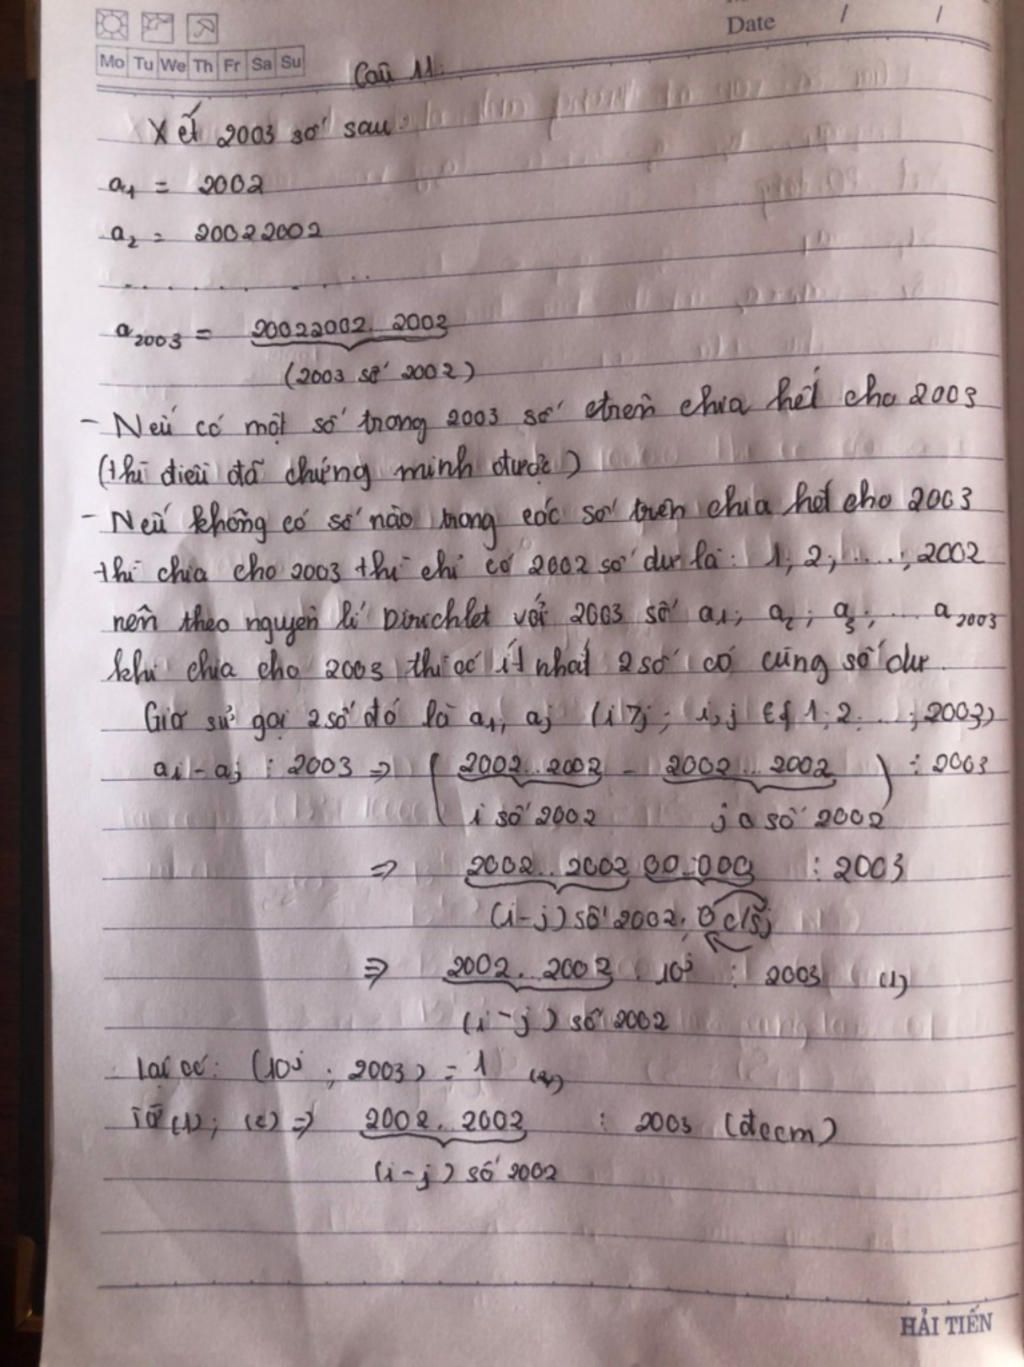 Date / /
Mo Tu We Th Fr Sa Su
Câu 11:
Xét 2003 số sau:
a₁ = 2002
a₂ = 20022002
...........
a₂₀₀₃ = 20022002...2002
(2003 số 2002)
- Nếu có một số trong 2003 số trên chia hết cho 2003
(thì điều đã chứng minh được)
- Nếu không có số nào trong các số trên chia hết cho 2003
thì chia cho 2003 thì chỉ có 2002 số dư là: 1; 2; ....; 2002
nên theo nguyên lí Dirichlet với 2003 số a₁; a₂; a₃; ... a₂₀₀₃
khi chia cho 2003 thì có ít nhất 2 số có cùng số dư.
Giả sử gọi 2 số đó là a₁, aⱼ (i > j; i, j ∈ { 1; 2 ...; 2003)
aᵢ - aⱼ ⋮ 2003 ⇒ ( 2002...2002 - 2002...2002 ) ⋮ 2003
i số 2002 j số 2002
⇒ 2002...2002 00...000 ⋮ 2003
(i-j) số 2002. 0 c/s j
⇒ 2002...2002 . 10ʲ ⋮ 2003 (1)
(i-j) số 2002
Lại có: (10ʲ ; 2003) = 1 (2)
Từ (1); (2) ⇒ 2002...2002 ⋮ 2003 (đccm)
(i-j) số 2002
HẢI TIẾN